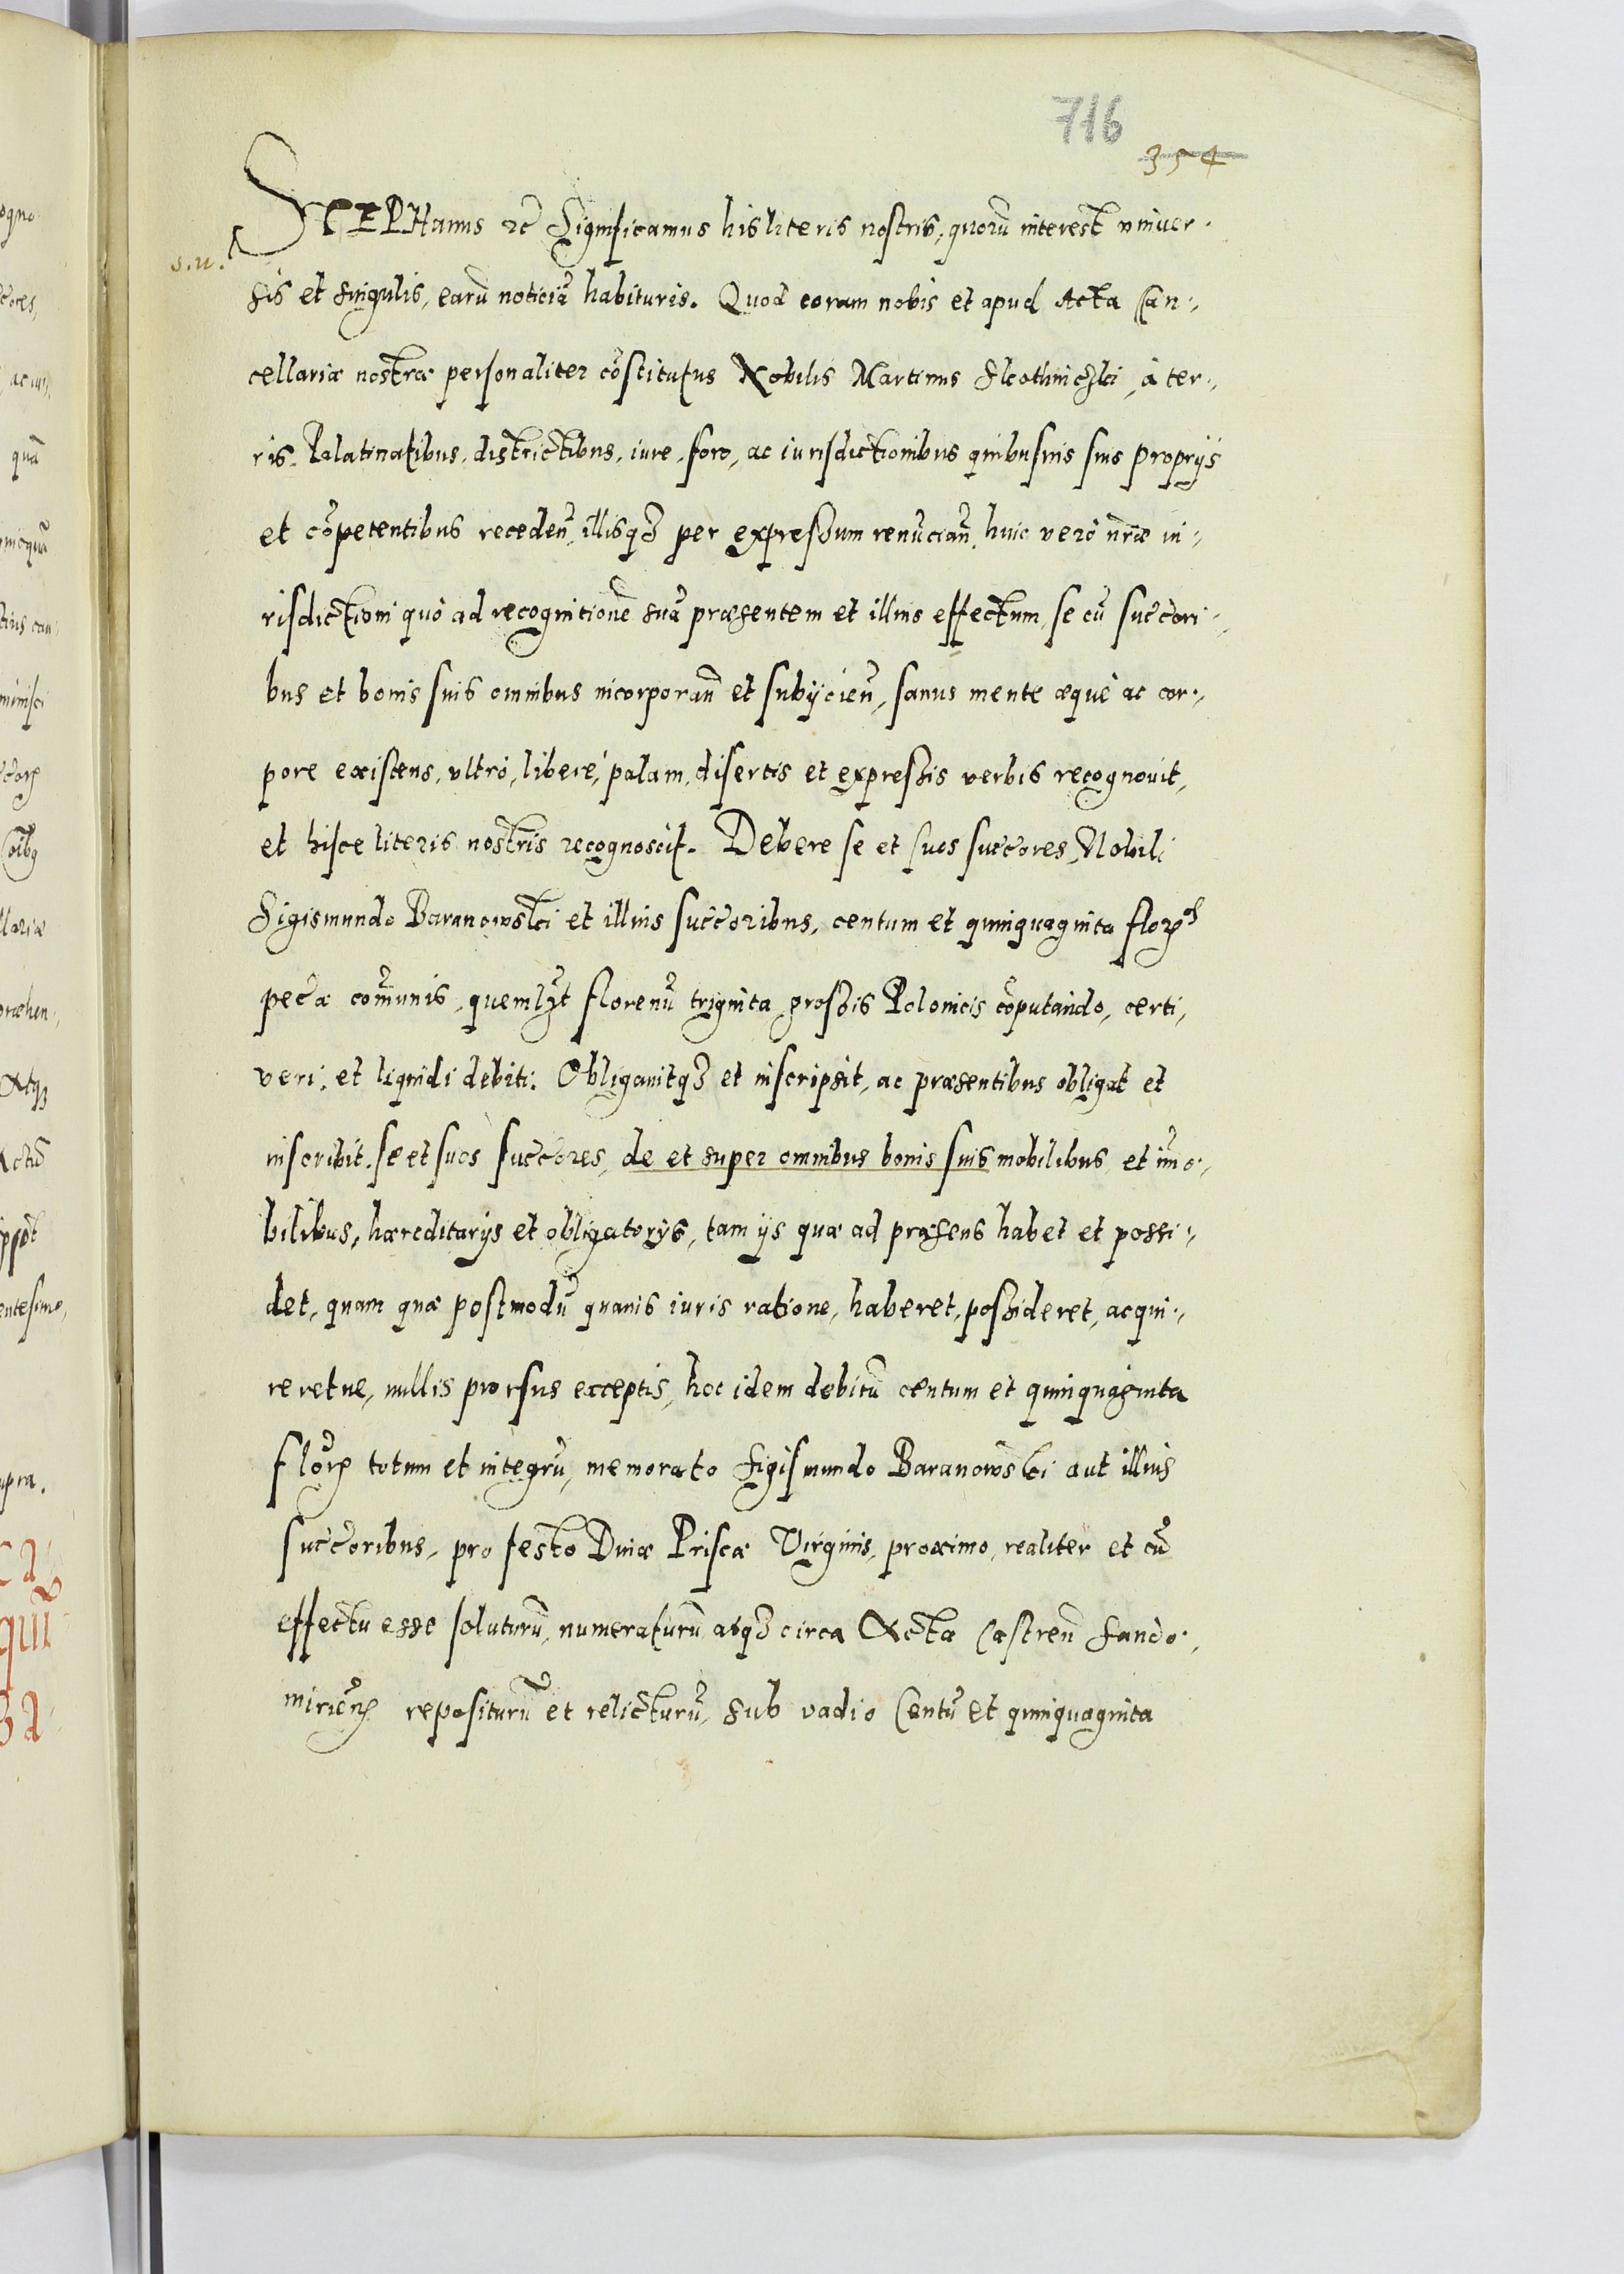 716
354
STEPHanus etc Significamus his literis nostris, quorū interest vniuer-
s.u.
sis et singulis, earū noticiā habituris. Quod coram nobis et apud Acta Can-
cellariæ nostræ personaliter cōstitutus Nobilis Martinus à ter-
ris, Palatinatibus, districtibus, iure, foro, ac iurisdictionibus quibusuis suis proprijs
et cōpetentibus recedeñ, illisq3 per expressum renūciañ, huic verò nr̃æ iu-
risdictioni quò ad recognitionē suā præsentem et illius effectum, se cū succōri-
bus et bonis suis omnibus incorporañ et subijcieñ, sanus mente æquè ac cor-
pore existens, vltrò, liberè, palam, disertis et expressis verbis recognouit,
et hisce literis nostris recognoscit. Debere se et suos succōres, Nobili
Sigismundo Baranowski et illius succōribus, centum et quinquaginta florꝝ
pec̃æ com̃unis, quemlꝫt florenū triginta grossis Polonicis cōputando, certi,
veri, et liquidi debiti. Obligauitq3 et inscripsit, ac præsentibus obligat et
inscribit, se et suos succōres, de et super omnibus bonis suis mobilibus et im̃o-
bilibus, hæreditarijs et obligatorijs, tam ijs quæ ad præsens habet et possi-
det, quam quæ postmodū quauis iuris ratione, haberet, possideret, acqui-
reretue, nullis prorsus exceptis, hoc idem debitū centum et quinquaginta
florꝝ totum et integrū, memorato Sigismundo Baranowski aut illius
succōribus, pro festo Diuæ Priscæ Virginis, proximo, realiter et cū
effectu esse soluturū, numeraturū, atq3 circa Acta Castreñ Sando-
mirieñ repositurū et relicturū, sub vadio Centū et quinquaginta